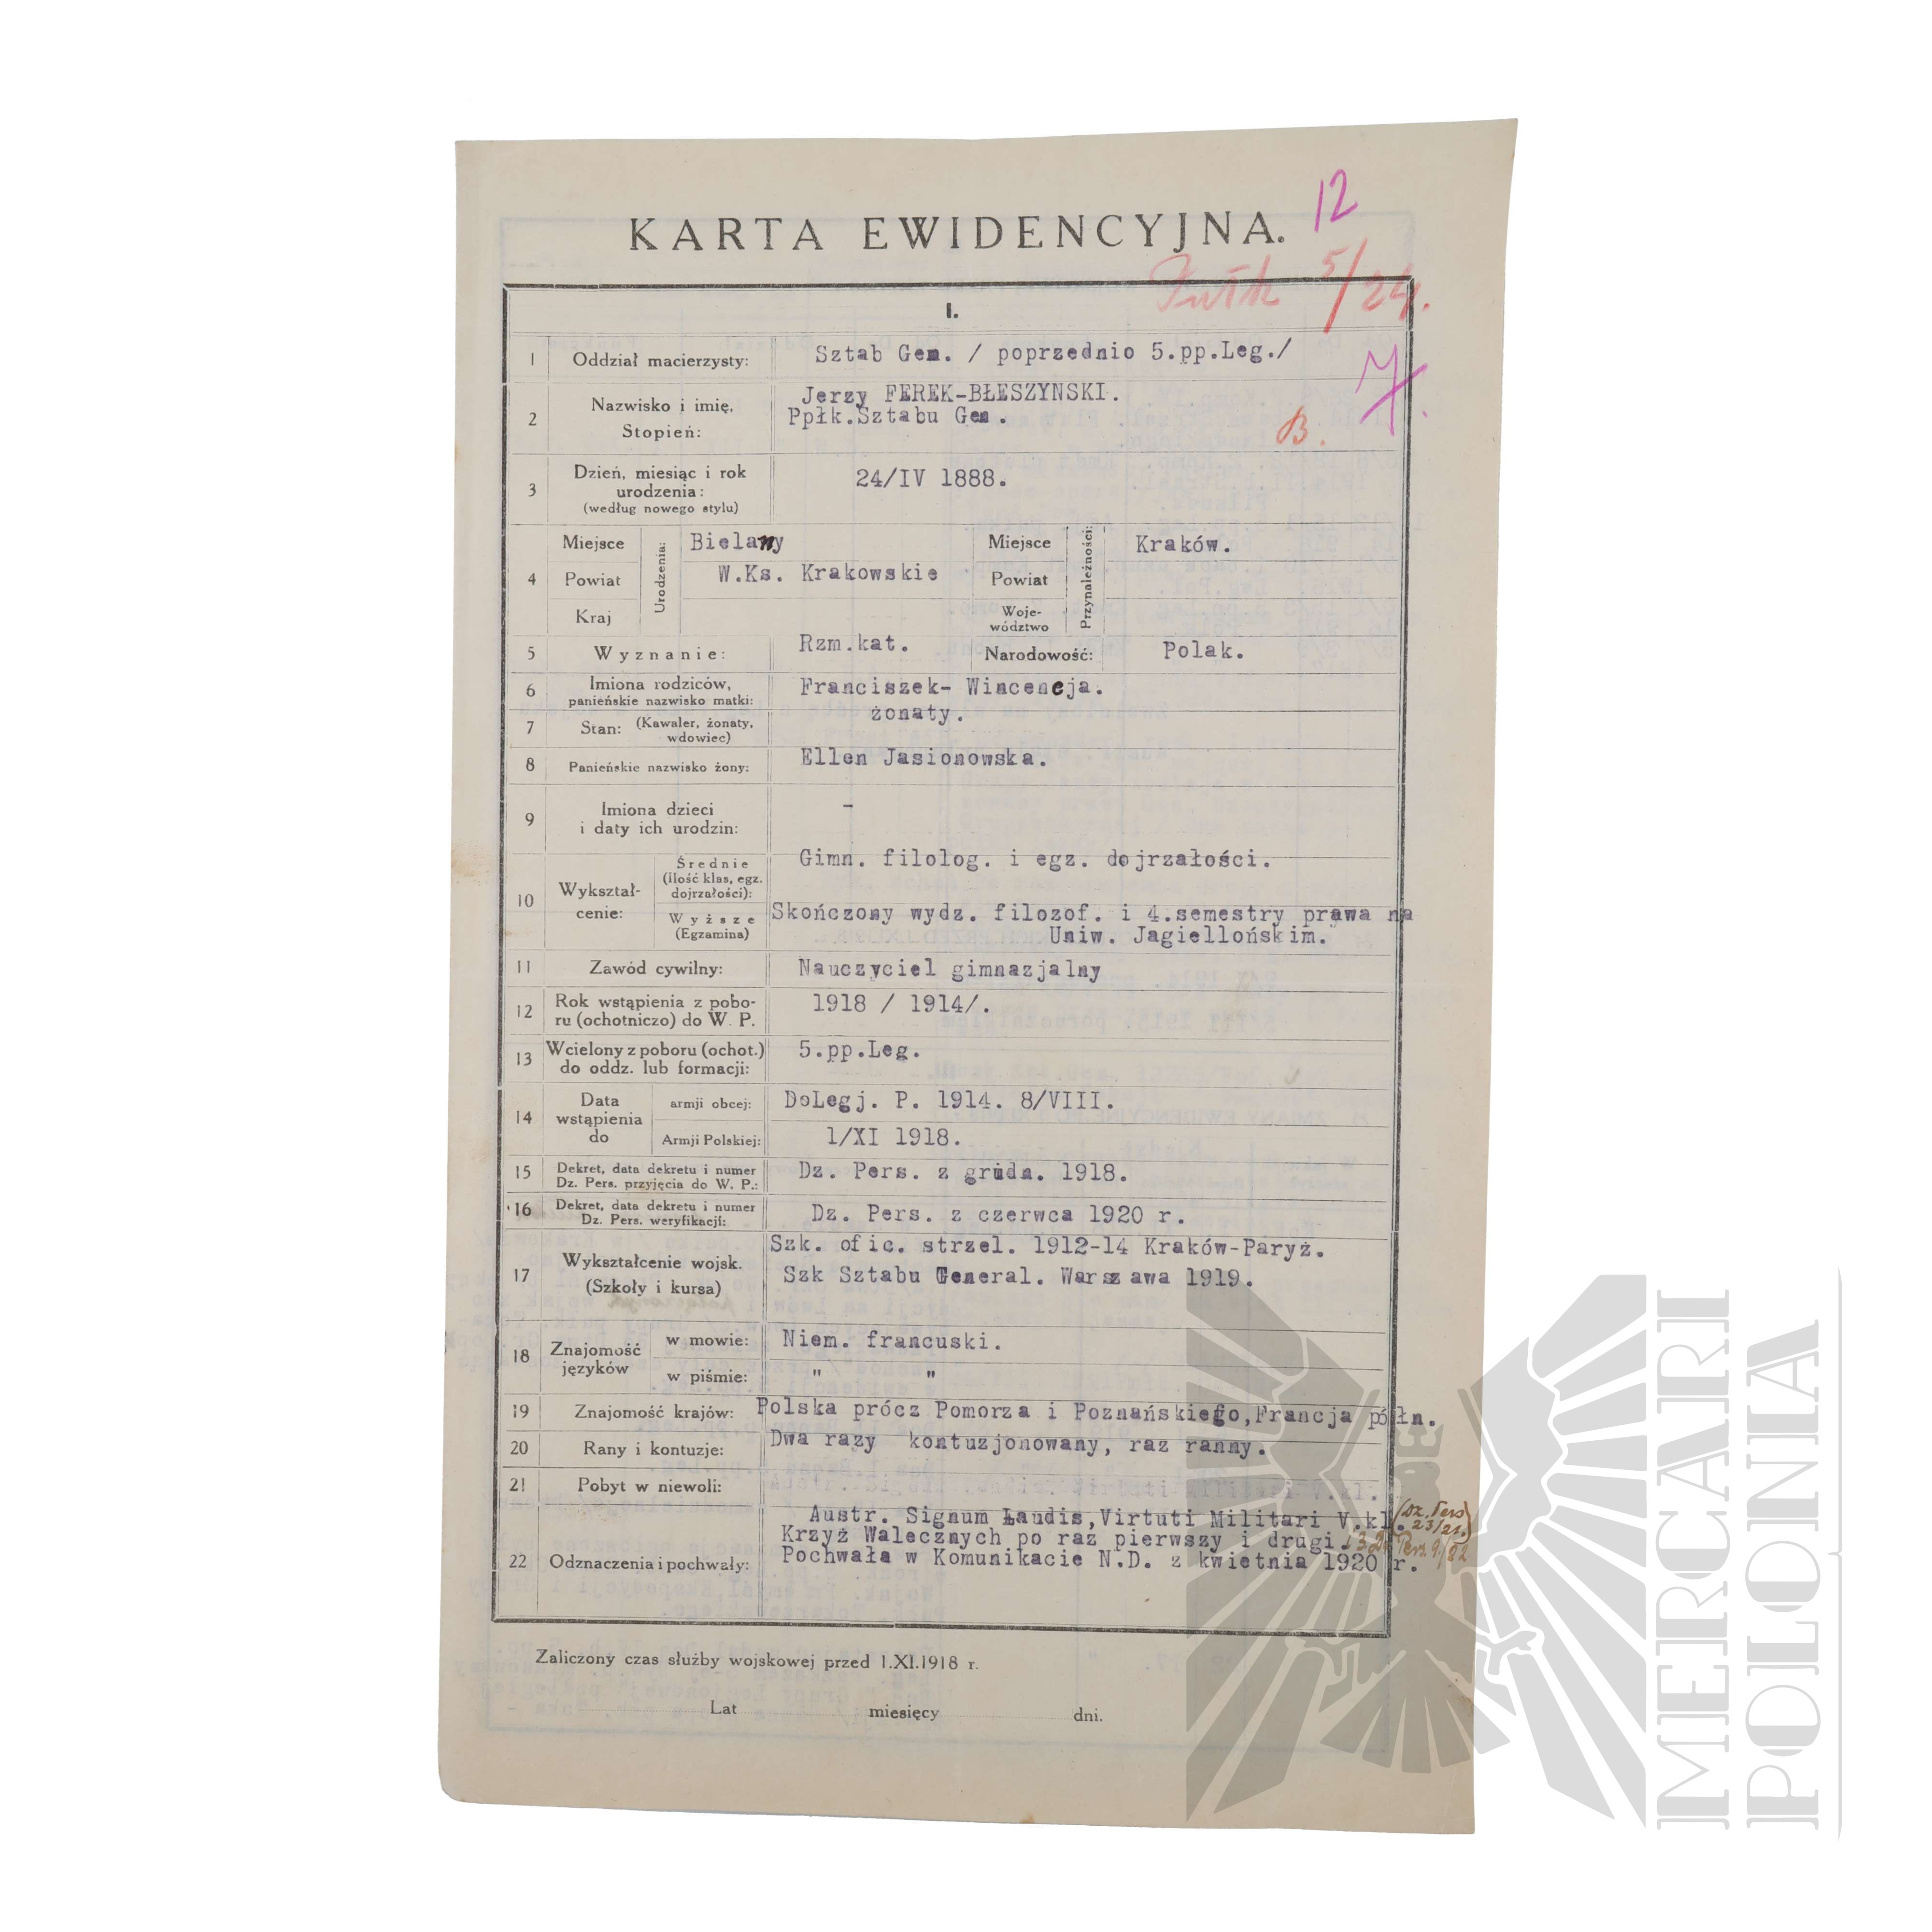 12
KARTA EWIDENCYJNA.
5/24.
I.
1 Oddział macierzysty: Sztab Gen. / poprzednio 5.pp.Leg./
2 Nazwisko i imię, Stopień: Jerzy FEREK-BŁESZYNSKI.
Ppłk.Sztabu Gen.
B.
3 Dzień, miesiąc i rok
urodzenia:
(według nowego stylu)
24/IV 1888.
4 Miejsce Powiat Kraj Urodzenia: Bielany
W.Ks. Krakowskie
Miejsce Powiat Woje-
wództwo Przynależności: Kraków.
5 Wyznanie: Rzm.kat. Narodowość: Polak.
6 Imiona rodziców,
panieńskie nazwisko matki: Franciszek- Wincencja.
7 Stan: (Kawaler, żonaty,
wdowiec) żonaty.
8 Panieńskie nazwisko żony: Ellen Jasionowska.
9 Imiona dzieci
i daty ich urodzin: -
10 Wykształ-
cenie: Średnie
(ilość klas, egz.
dojrzałości): Gimn. filolog. i egz. dojrzałości.
Wyższe
(Egzamina) Skończony wydz. filozof. i 4.semestry prawa na
Uniw. Jagiellońskim.
11 Zawód cywilny: Nauczyciel gimnazjalny
12 Rok wstąpienia z pobo-
ru (ochotniczo) do W. P. 1918 / 1914/.
13 Wcielony z poboru (ochot.)
do oddz. lub formacji: 5.pp.Leg.
14 Data
wstąpienia
do armji obcej: DoLegj. P. 1914. 8/VIII.
Armji Polskiej: 1/XI 1918.
15 Dekret, data dekretu i numer
Dz. Pers. przyjęcia do W. P.: Dz. Pers. z grudn. 1918.
16 Dekret, data dekretu i numer
Dz. Pers. weryfikacji: Dz. Pers. z czerwca 1920 r.
17 Wykształcenie wojsk.
(Szkoły i kursa) Szk. ofic. strzel. 1912-14 Kraków-Paryż.
Szk Sztabu General. Warszawa 1919.
18 Znajomość
języków w mowie: Niem. francuski.
w piśmie: " "
19 Znajomość krajów: Polska prócz Pomorza i Poznańskiego,Francja półn.
20 Rany i kontuzje: Dwa razy kontuzjonowany, raz ranny.
21 Pobyt w niewoli:
22 Odznaczenia i pochwały: Austr. Signum Laudis,Virtuti Militari V.kl. (Dz. Pers
23/21.)
Krzyż Walecznych po raz pierwszy i drugi.
Pochwała w Komunikacie N.D. z kwietnia 1920 r.
Zaliczony czas służby wojskowej przed 1.XI.1918 r.
Lat miesięcy dni.
MERCARI
POLONIA